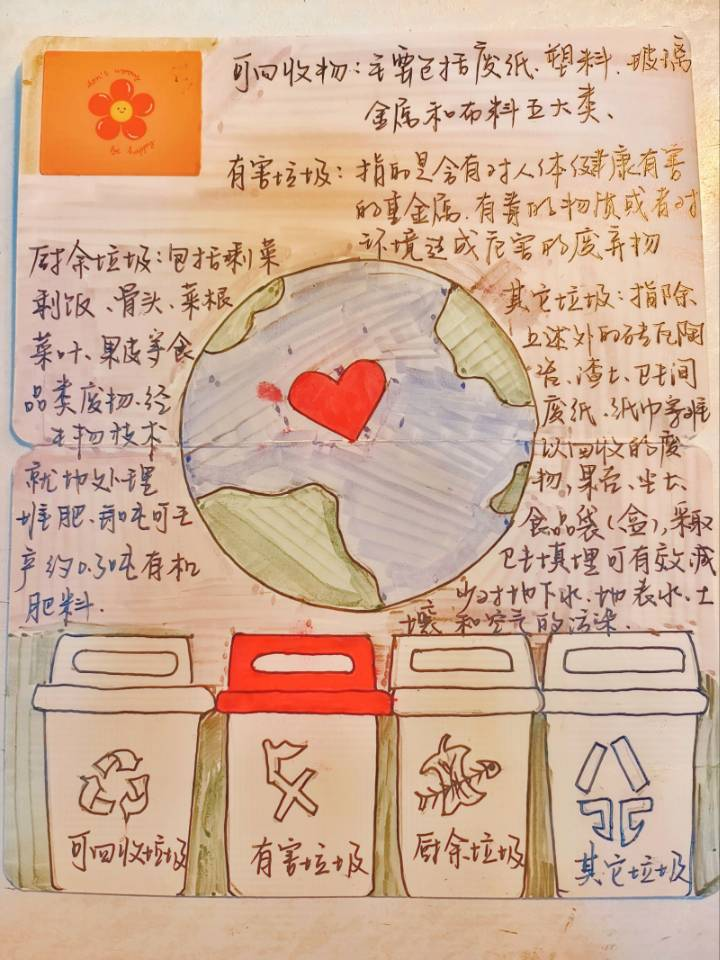 don't worry
be happy
可回收物：主要包括废纸、塑料、玻璃
金属和布料五大类、
有害垃圾：指的是含有对人体健康有害
的重金属、有毒的物质或者对
环境造成危害的废弃物
厨余垃圾：包括剩菜
剩饭、骨头、菜根
菜叶、果皮等食
品类废物、经
生物技术
就地处理
堆肥、每吨可生
产约0.3吨有机
肥料.
其它垃圾：指除
上述外的砖瓦陶
瓷、渣土、卫生间
废纸、纸巾等难
以回收的废
物，果壳、尘土、
食品袋（盒），采取
卫生填埋可有效减
少对地下水、地表水、土
壤和空气的污染.
可回收垃圾
有害垃圾
厨余垃圾
其它垃圾